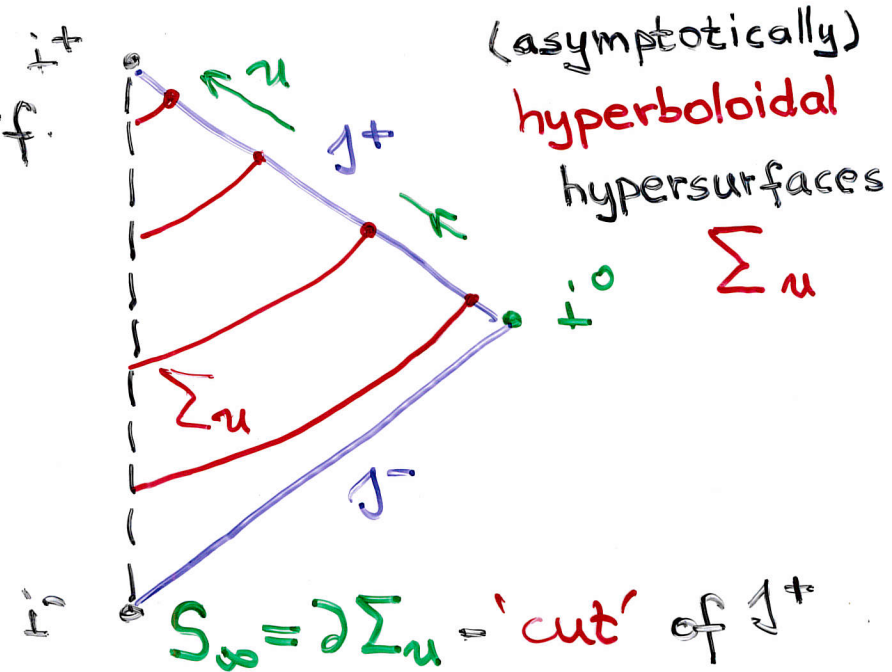 i⁺
(asymptotically)
u
hyperboloidal
f.
𝒥⁺
hypersurfaces
Σᵤ
i⁰
Σᵤ
𝒥⁻
i⁻
S∞ = ∂Σᵤ - 'cut' of 𝒥⁺